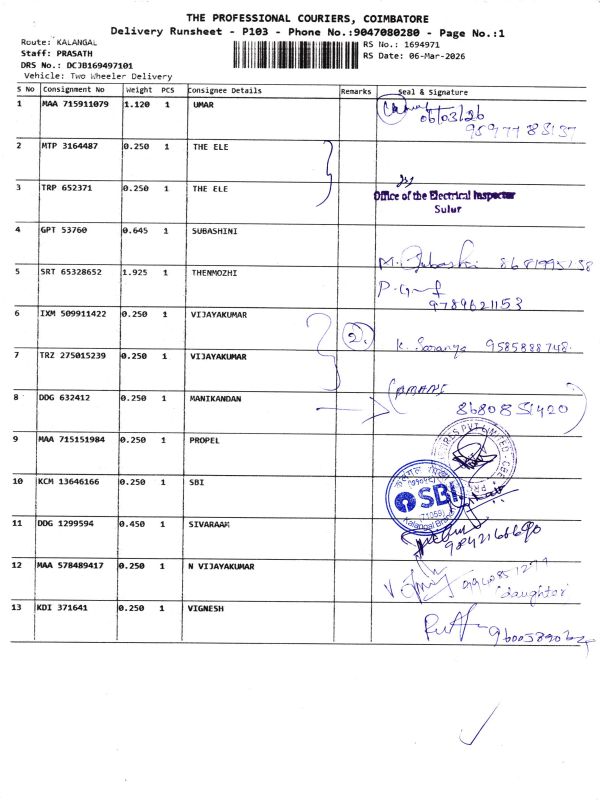 THE PROFESSIONAL COURIERS, COIMBATORE
Delivery Runsheet - P103 - Phone No.:9047080280 - Page No.:1
Route: KALANGAL
RS No.: 1694971
Staff: PRASATH
RS Date: 06-Mar-2026
DRS No.: DCJB169497101
Vehicle: Two Wheeler Delivery
S No Consignment No Weight PCS Consignee Details Remarks Seal & Signature
1 MAA 715911079 1.120 1 UMAR
06/03/26
2 MTP 3164487 0.250 1 THE ELE
3 TRP 652371 0.250 1 THE ELE
Office of the Electrical Inspector
Sulur
4 GPT 53760 0.645 1 SUBASHINI
M. 8681995138
5 SRT 65328652 1.925 1 THENMOZHI
9789621153
6 IXM 509911422 0.250 1 VIJAYAKUMAR
2. K. Saranya 9585888748
7 TRZ 275015239 0.250 1 VIJAYAKUMAR
8 DDG 632412 0.250 1 MANIKANDAN
8680851420
9 MAA 715151984 0.250 1 PROPEL
10 KCM 13646166 0.250 1 SBI
SBI
Kalangal
11 DDG 1299594 0.450 1 SIVARAAM
9842166690
12 MAA 578489417 0.250 1 N VIJAYAKUMAR
daughter
13 KDI 371641 0.250 1 VIGNESH